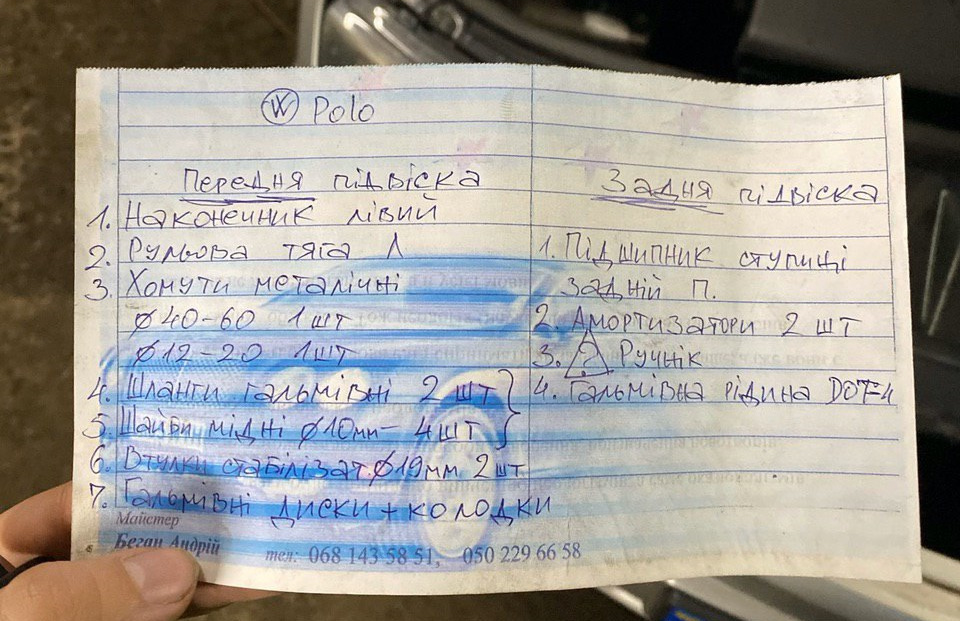 VW Polo
Передня підвіска
1. Наконечник лівий
2. Рульова тяга Л
3. Хомути металічні
⌀40-60 1 шт
⌀12-20 1шт
4. Шланги гальмівні 2 шт
5. Шайби мідні ⌀10мм- 4шт
6. Втулки стабілізат. ⌀19мм 2шт
7. Гальмівні диски + колодки
Задня підвіска
1. Підшипник ступиці
задній П.
2. Амортизатори 2 шт
3. ? Ручнік
4. Гальмівна рідина DOT-4
Майстер
Беган Андрій тел: 068 143 58 51, 050 229 66 58